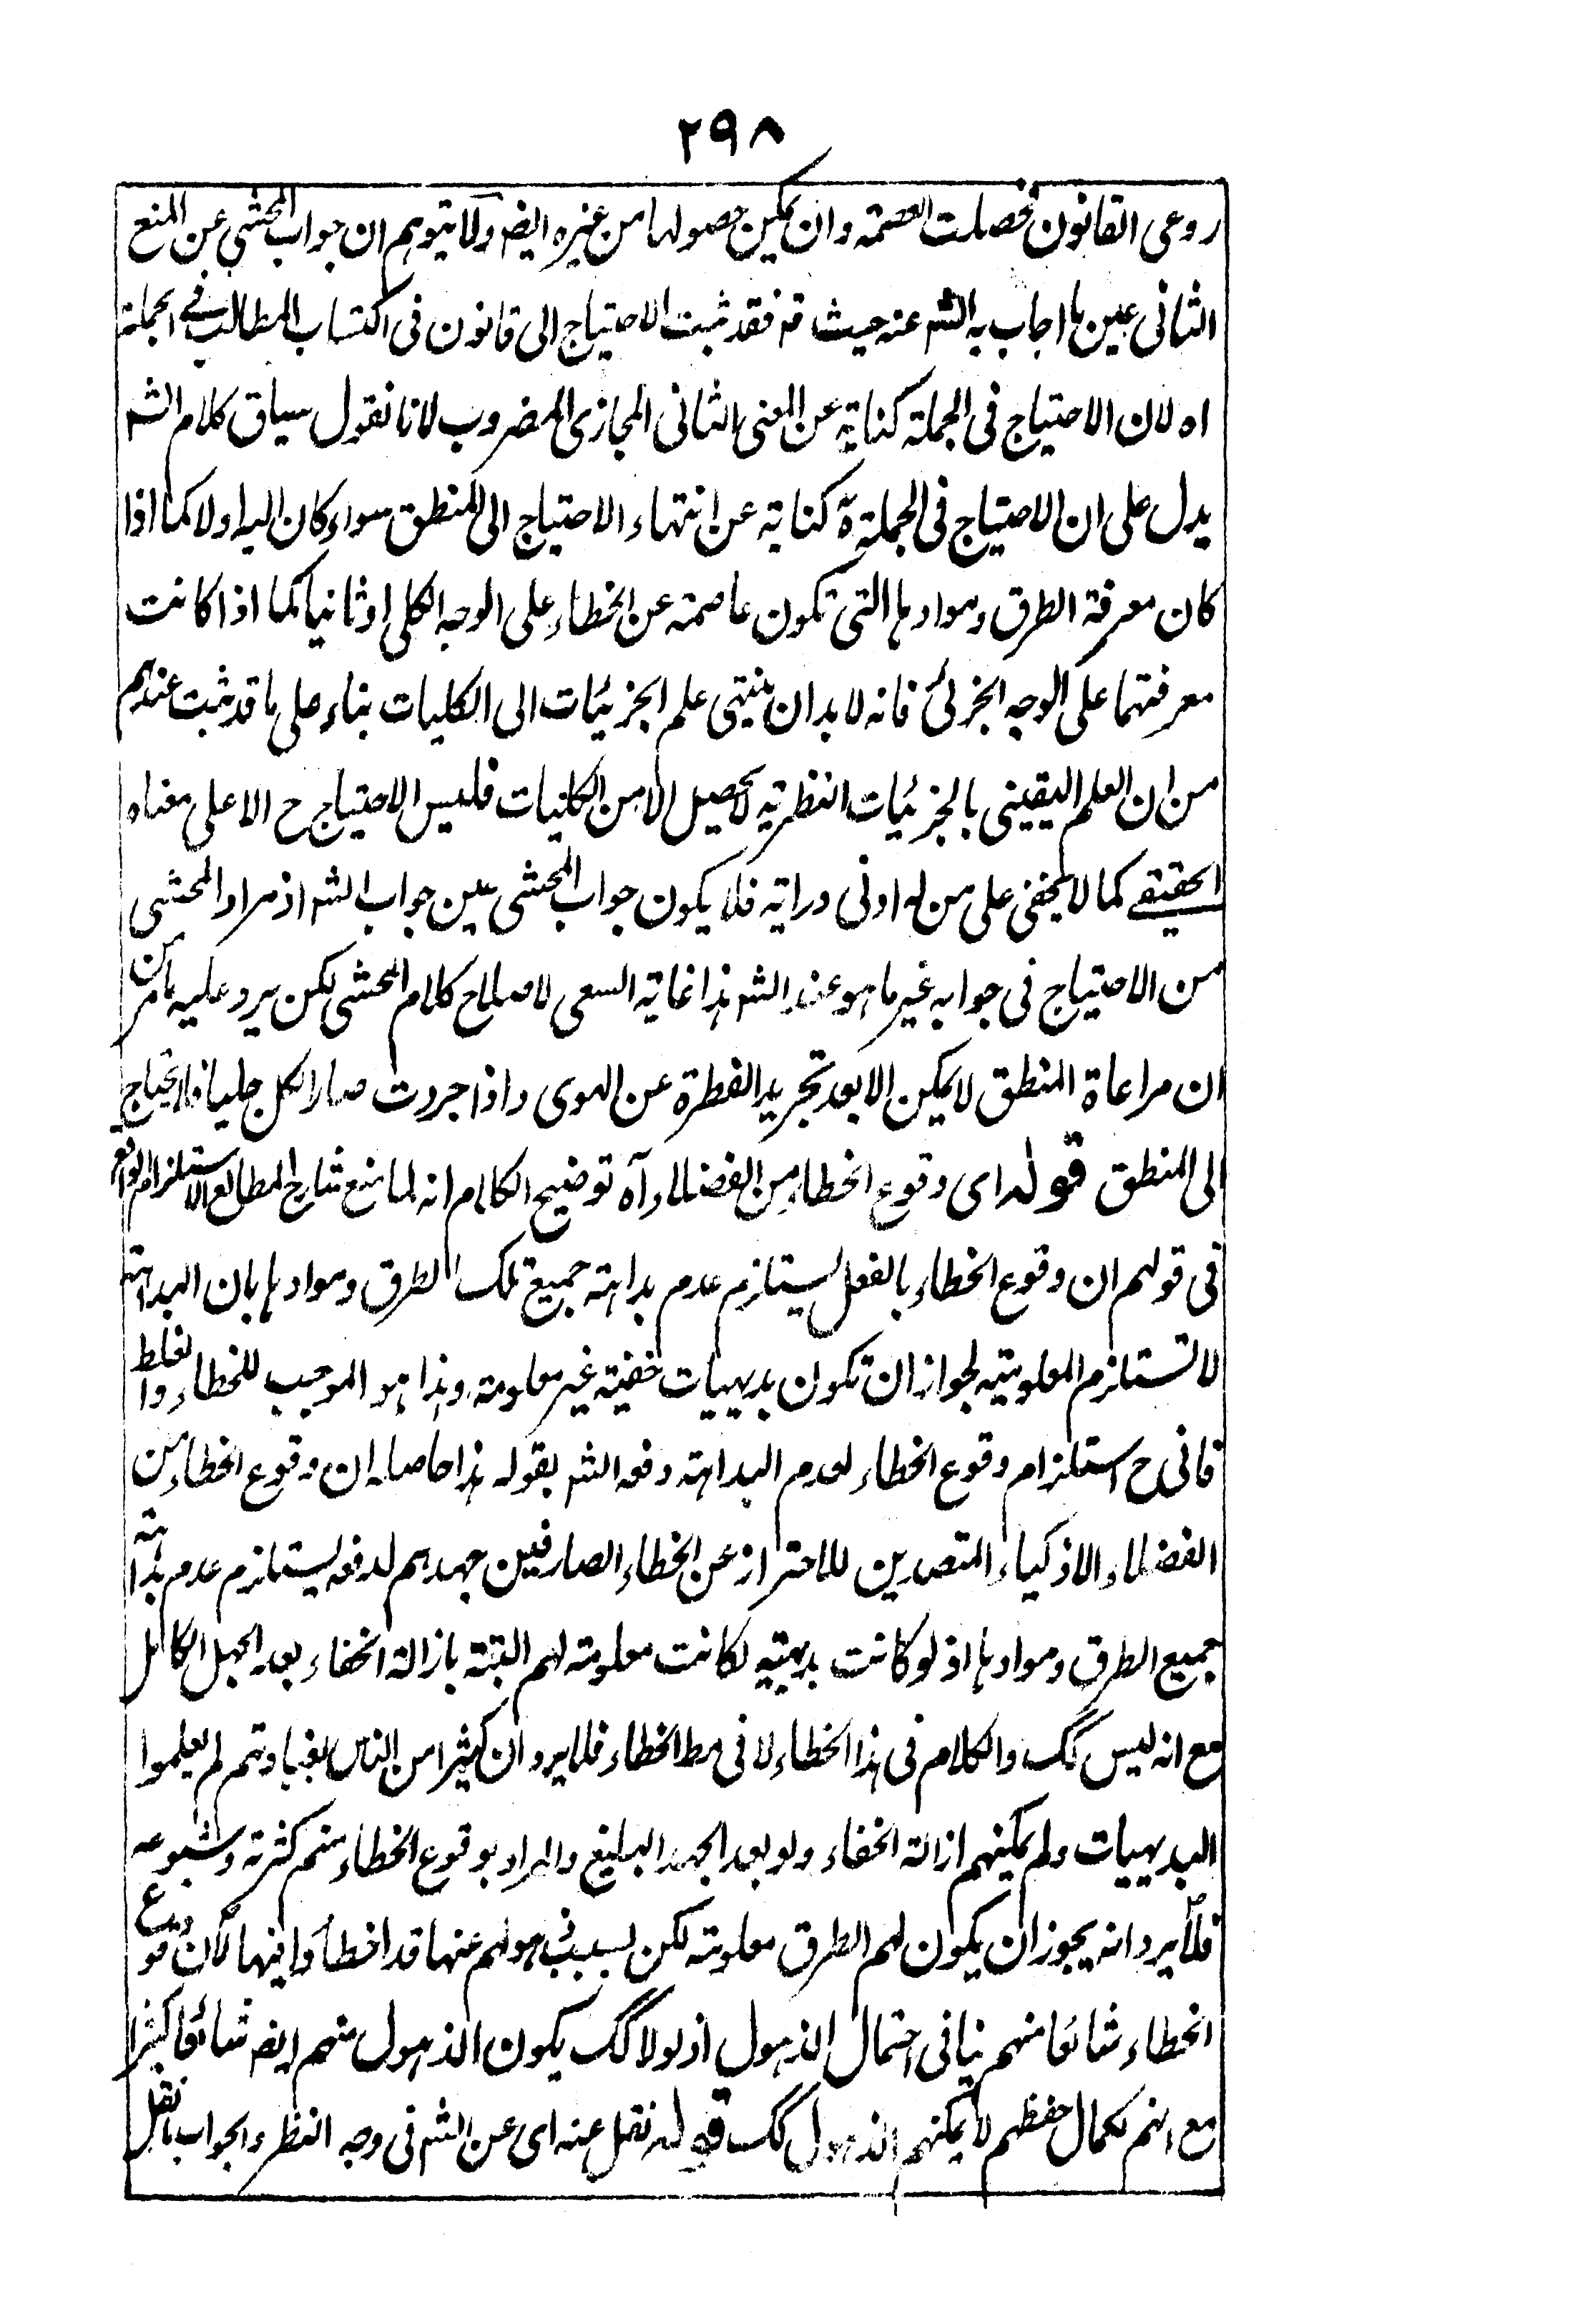 ٢٩٨
روعى القانون فحصلت العصمة وان يمكن حصولها من غيره ايضا ولا يتوهم ان جواب المحشى عن المنع
الثانى عين ما اجاب به الشه عنه حيث قه فقد ثبت الاحتياج الى قانون فى اكتساب المطالب فى الجملة
اه لان الاحتياج فى الجملة كناية عن المعنى الثانى المجازى المضروب لانا نقول سياق كلام الشه
يدل على ان الاحتياج فى الجملة ة كناية عن انتهاء الاحتياج الى المنطق سواء كان اليه اولا كما اذا
كان معرفة الطرق وموادها التى تكون عاصمة عن الخطاء على الوجه الكلى او ثانيا كما اذا كانت
معرفتهما على الوجه الجزئى فانه لا بد ان ينتهى علم الجزئيات الى الكليات بناء على ما قد ثبت عندهم
من ان العلم اليقينى بالجزئيات النظرية لا يحصل الا من الكليات فليس الاحتياج ح الا على معناه
الحقيقى كما لا يخفى على من له ادنى دراية فلا يكون جواب المحشى عين جواب الشه اذ مراد المحشى
من الاحتياج فى جوابه غير ما هو عند الشه هذا غاية السعى لاصلاح كلام المحشى لكن يرد عليه ما مر من
ان مراعاة المنطق لا يمكن الا بعد تجريد الفطرة عن الهوى واذا جردت صار الكل جليا فلا يحتاج
الى المنطق قوله اى وقوع الخطاء من الفضلاء آه توضيح الكلام انه لما منع شارح المطالع الاستلزام الواقع
فى قولهم ان وقوع الخطاء بالفعل يستلزم عدم بداهة جميع تلك الطرق وموادها بان البداهة
لا تستلزم المعلومية لجواز ان تكون بديهيات خفية غير معلومة وهذا هو الموجب للخطاء والغلط
فانى ح استلزام وقوع الخطاء لعدم البداهة دفعه الشه بقوله هذا حاصله ان وقوع الخطاء من
الفضلاء الاذكياء المتصدين للاحتراز عن الخطاء الصارفين جهدهم لدفعه يستلزم عدم بداهة
جميع الطرق وموادها اذ لو كانت بديهية لكانت معلومة لهم البتة بازالة الخفاء بعد الجهل الكامل
مع انه ليس كك والكلام فى هذا الخطاء لا فى مط الخطاء فلا يرد ان كثيرا من الناس لغباوتهم لم يعلموا
البديهيات ولم يمكنهم ازالة الخفاء ولو بعد الجهد البليغ والمراد بوقوع الخطاء منهم كثرته وشيوعه
فلا يرد انه يجوز ان يكون لهم الطرق معلومة لكن بسبب ذهولهم عنها قد اخطأوا فيها لان وقوع
الخطاء شائعا منهم ينافى احتمال الذهول اذ لولا كك يكون الذهول منهم ايضا شائعا كثيرا
مع انهم لكمال حفظهم لا يمكنهم الذهول كك قوله نقل عنه اى عن الشه فى وجه النظر والجواب ما نقل